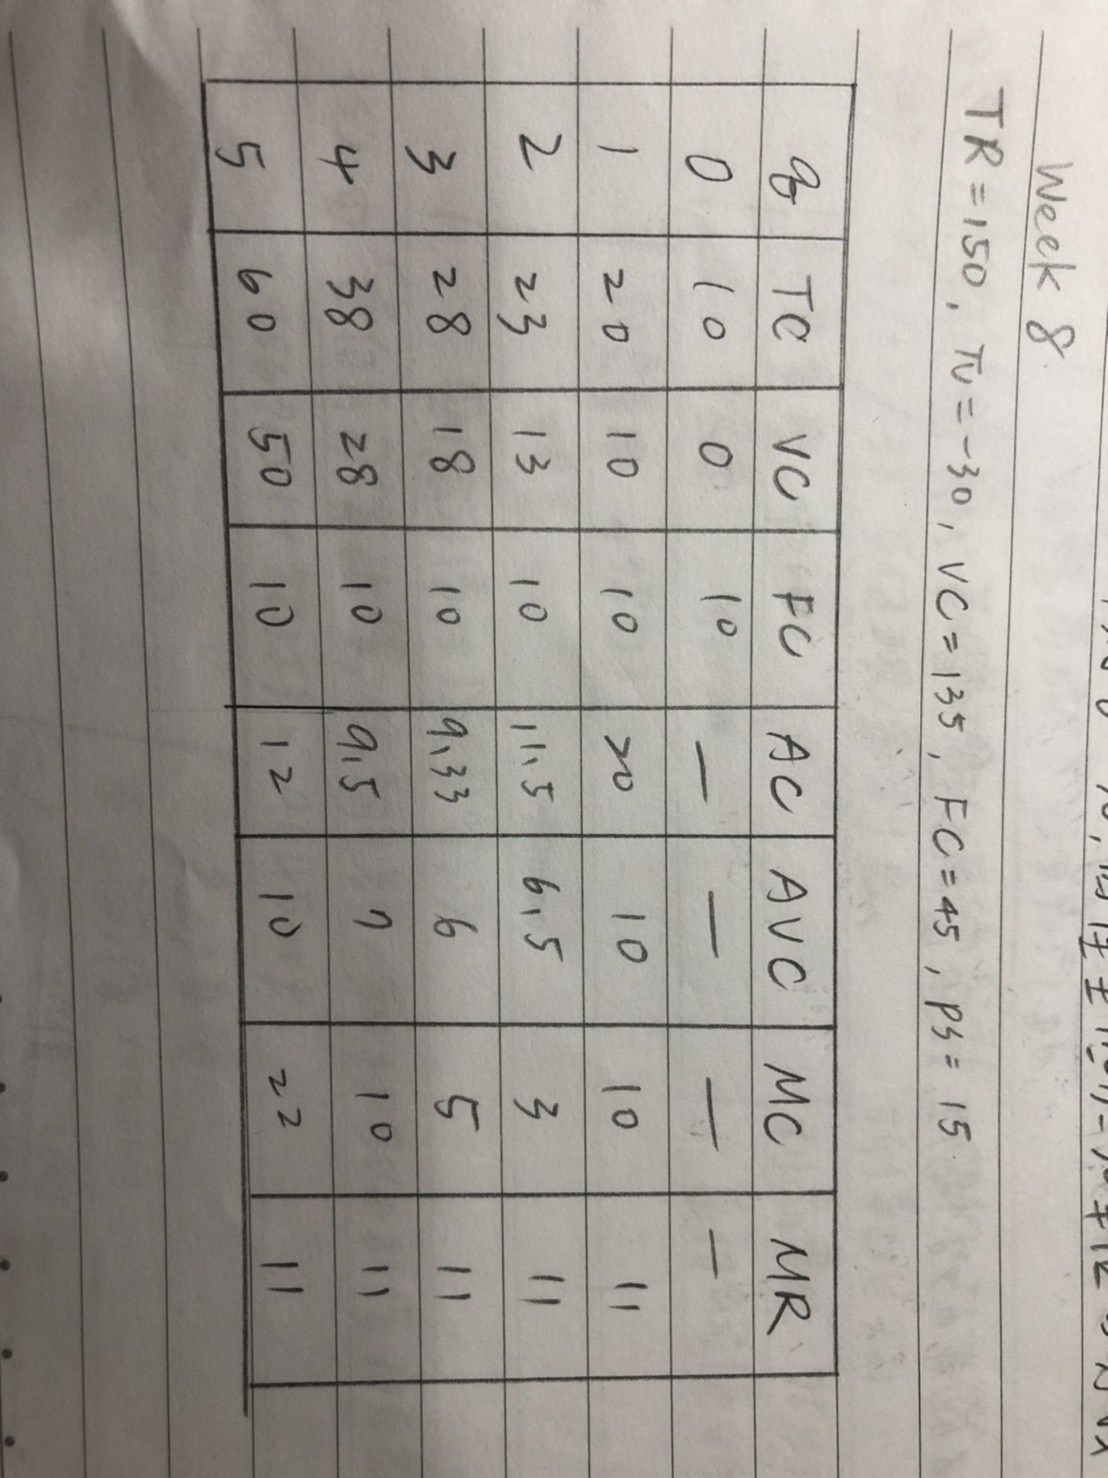 Week 8
TR = 150, π = -30, VC = 135, FC = 45, PS = 15
q TC VC FC AC AVC MC MR
0 10 0 10 — — — —
1 20 10 10 20 10 10 11
2 23 13 10 11,5 6,5 3 11
3 28 18 10 9,33 6 5 11
4 38 28 10 9,5 7 10 11
5 60 50 10 12 10 22 11